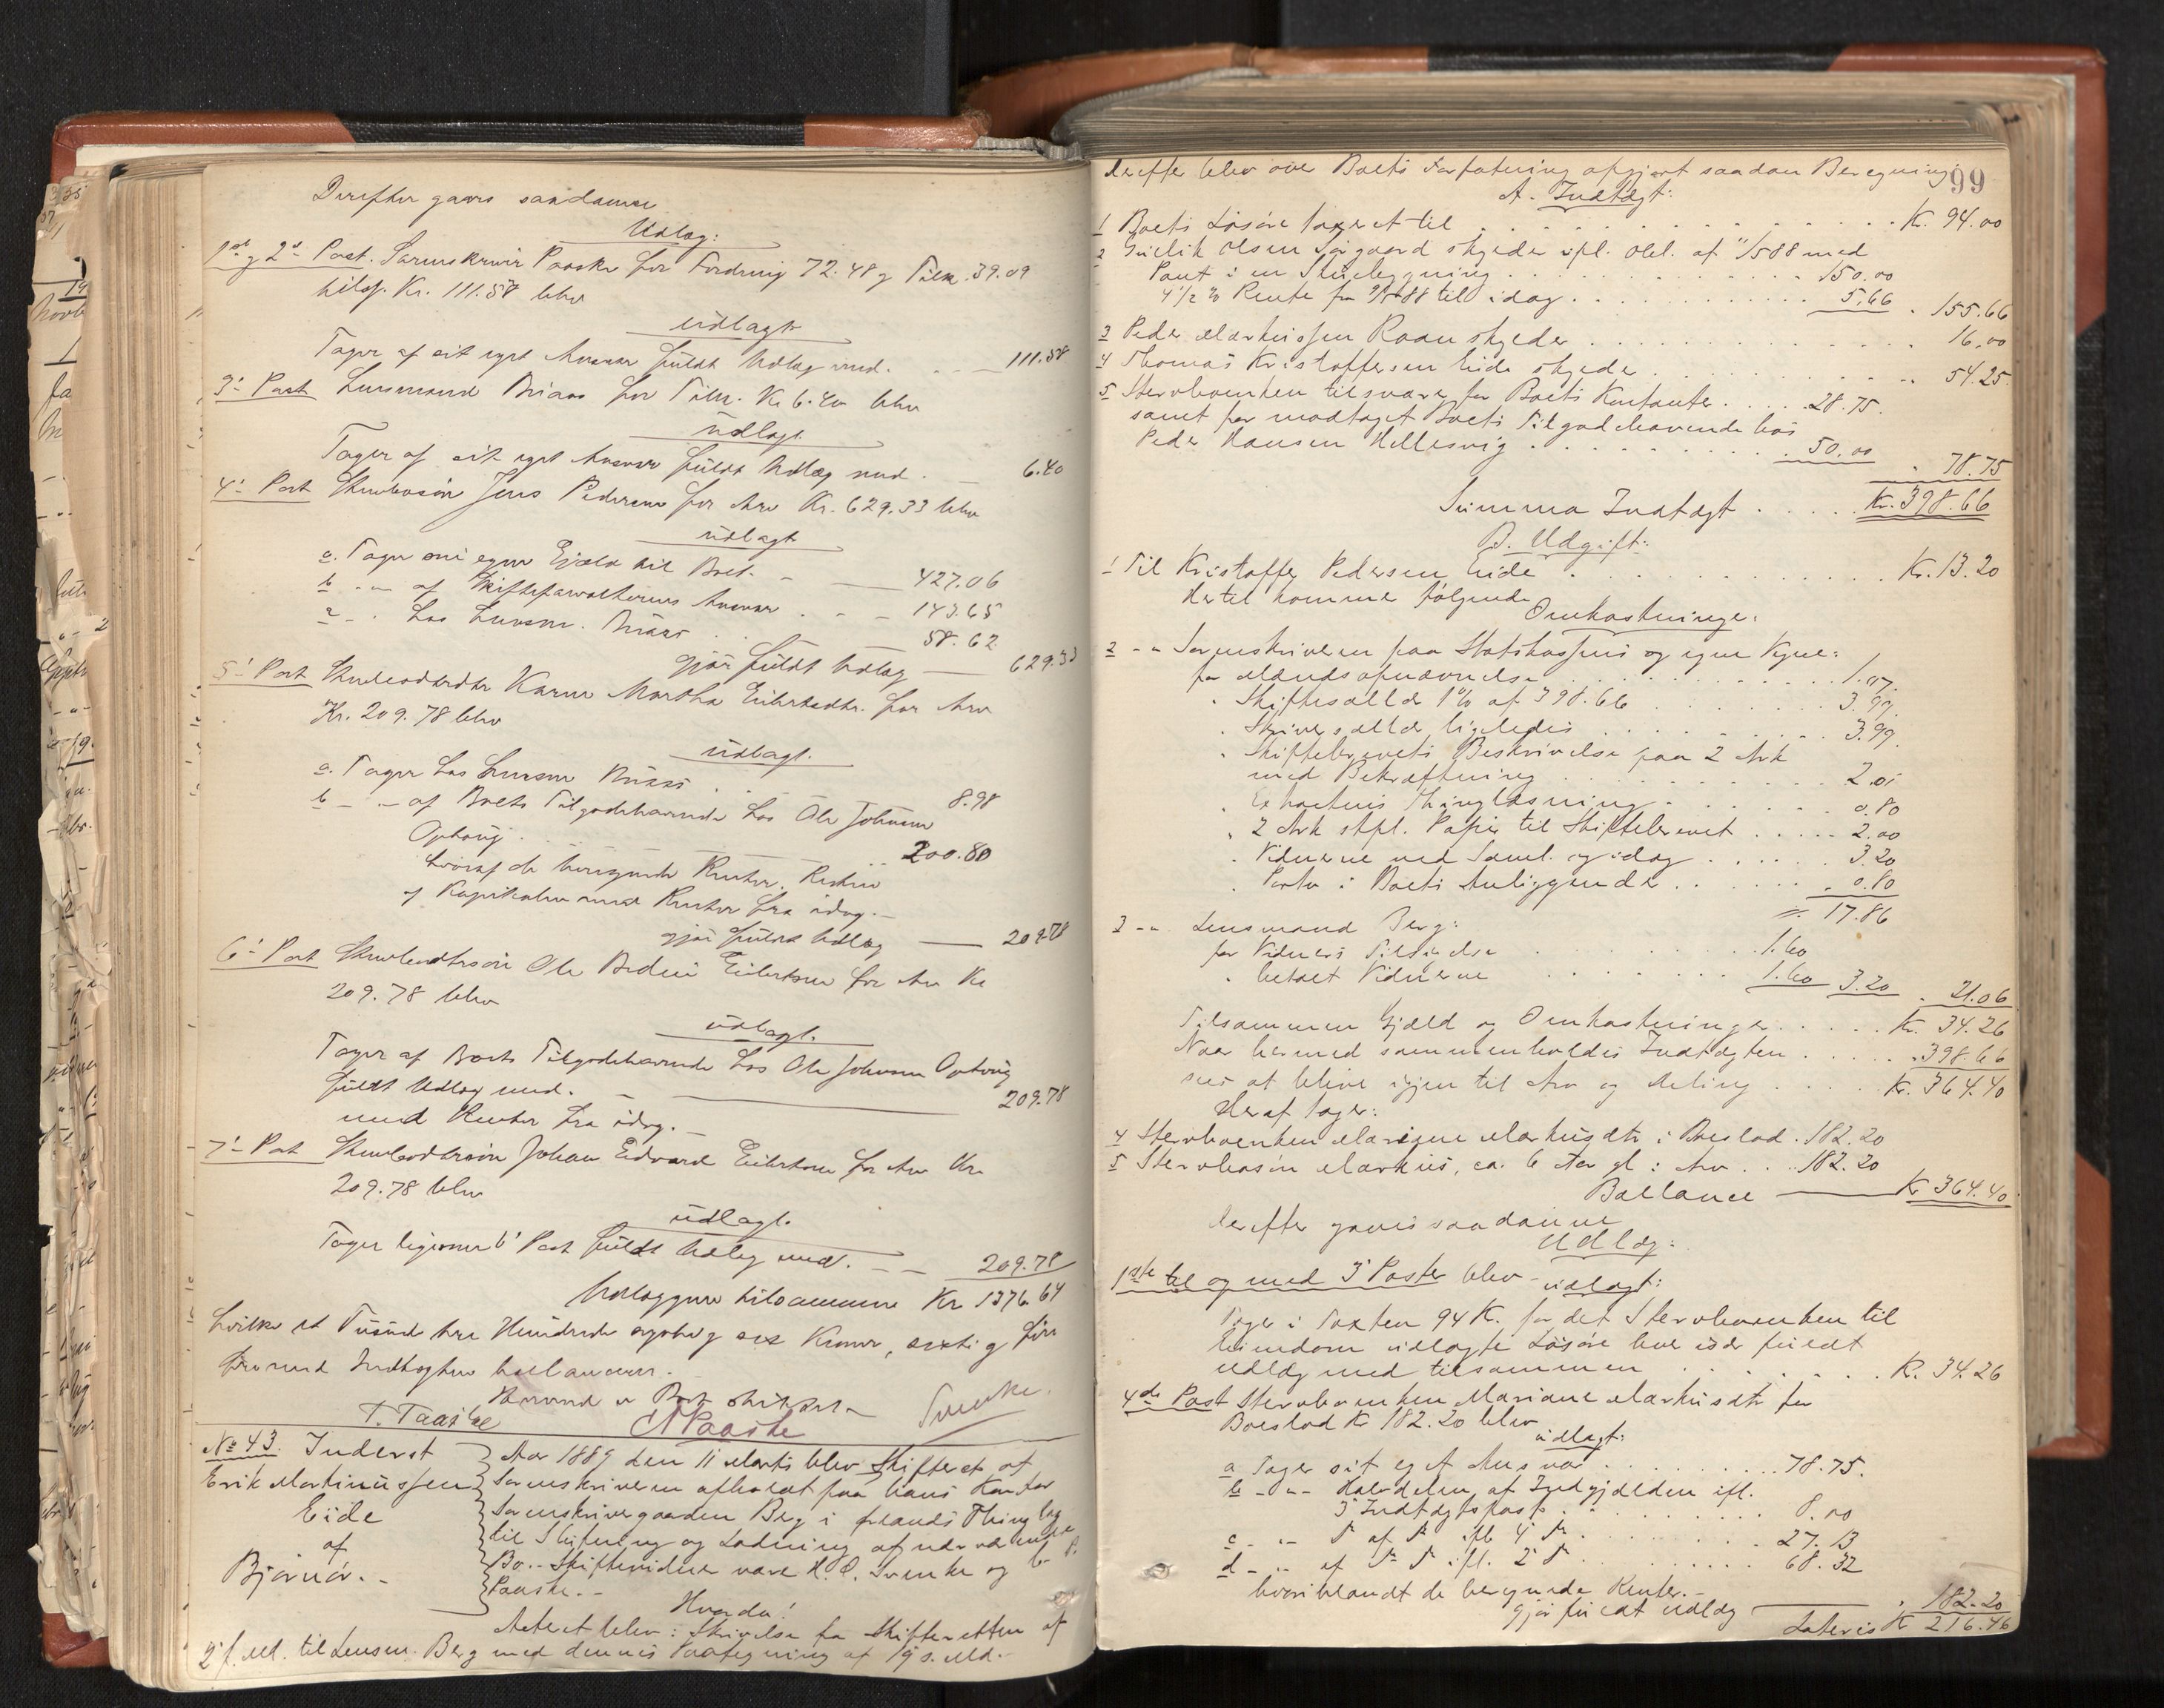 Derefter gaves saadanne
Udlæg:
1ste og 2den Post. Sorenskriver Paaske for Fordring 72.48 og Tilk. 39.09
tilsf. Kr. 111.58 blev
udlagt
Tager af sit eget Ansvar fuldt Udlæg med. - - - 111.58
3' Post Lensmand for Tilk. Kr 6.40 blev
udlagt
Tager af sit eget Ansvar fuldt Udlæg med. - 6.40
4' Post Jens Pedersen for Arv Kr. 629.33 blev
udlagt
a. Tager sin egen Gjæld til Boet. - 427.06
b - " - af Skifteforvalterens Ansvar . - - 143.65
c - . hos Lensm. 58.62
gjør fuldt Udlæg — 629.33
5' Post Karen Martha Eilertsdtr. for Arv
Kr. 209.78 blev
udlagt.
a. Tager hos Lensm 8.98
b - - af Boets Tilgodehavende hos Ole Johnsen
200.80
hvoraf de beregnede Renter. Resten
af Kapitalen med Renter fra idag. -
gjør fuldt Udlæg — 209.78
6' Post Ole Eilertsen for Arv Kr
209.78 blev
udlagt.
Tager af Boets Tilgodehavende hos Ole Johnsen
fuldt Udlæg med. - 209.78
med Renter fra idag. -
7' Post Johan Edvard Eilertsen for Arv Kr.
209.78 blev
udlagt.
Tager ligesom 6' Post fuldt Udlæg med. - - 209.78
Udlæggene tilsammen Kr 1376.64
hvilke et Tusind tre Hundrede sytti og sex Kroner, sexti og fire
Øre med Indtægten ballancerer.
Hermed er Boet sluttet.
T. Paaske N Paaske Svenke.
No 43. Inderst
Erik Martinussen
Eide
af
Bjørnør. -
Aar 1889 den 11 Marts blev Skifteret af
Sorenskriveren afholdt paa hans Kontor
Sorenskrivergaarden Berg i Ørlands Thinglag
til Slutning og Lodning af nærværende
Bo. - Skiftevidner vare H. O. Svenke og
Paaske. -
Hvorda!
Acteret blev: Skrivelse fra Skifteretten af
2 f. Md. til Lensm. Berg med dennes Paategning af 19 s. Md. -
99
derefter blev over Boets Forfatning opgjort saadan Beregning
A. Indtægt:
1 Boets Løsøre taxeret til . . . Kr. 94.00
2 Olsen skylder ipl. Obl. af 11/5 88 med
Pant i en Stuebygning . . . 150.00
4 1/2 % Rente fra 11/5 88 til idag . . . 5.66 . 155.66
3 Peder Markussen Raan skylder . . . 16.00
4 Thomas Kristoffersen Eide skylder . . . 54.25
5 Stervboenken tilsvarer for Boets Kontanter . . . 28.75
samt for modtaget Boets Tilgodehavende hos
Peder Hansen Hellesvig . . . 50.00 . 78.75
Summa Indtægt . . . Kr. 398.66
B. Udgift:
1 Til Kristoffer Pedersen Eide . . . Kr. 13.20
dertil komme følgende
Omkostninger:
2 - " Sorenskriveren paa Statskassens og egne Vegne:
for Mandsopnævnelse . . . 1.07
" Skiftesallær 1% af 398.66 . . . 3.99
" Skriversallær ligeledes . . . 3.99
" Skiftebrevets Beskrivelse paa 2 Ark
med Bekræftning . . . 2.01
" Extractens Thinglæsning . . . 0.80
" 2 Ark stpl. Papir til Skiftebrevet . . . 2.00
" Vidnerne ved Saml. og idag . . . 3.20
" Porto i Boets Anliggender . . . 0.80
17.86
3 - " Lensmand Berg:
for Vidners Tilsigelse . . . 1.60
" betalt Vidnerne . . . 1.60 3.20 . 21.06
Tilsammen Gjæld og Omkostninger . . . Kr. 34.26
Naar hermed sammenholdes Indtægten . . . 398.66
sees at blive igjen til Arv og Deling . . . Kr. 364.40
Deraf tager:
4 Stervboenken Mariane Markusdtr i Boeslod . 182.20
5 Stervbosøn Markus, ca. 6 Aar gl: Arv . . 182.20
Ballance — Kr 364.40
derefter gaves saadanne
Udlæg:
1ste til og med 3' Poster blev udlagt:
Tager i Taxten 94 K. for det Stervboenken til
Eiendom udlagte Løsøre hver især fuldt
Udlæg med tilsammen . . . Kr. 34.26
4de Post Stervboenken Mariane Markusdtr for
Boeslod Kr 182.20 blev
udlagt:
a Tager sit eget Ansvar . . . 78.75.
b - " - Halvdelen af Indgjælden ifl.
3' Indtægtspost . . . 8.00
c - " - af ifl 4 . . . 27.13
d - " - af ifl. 2 . . . 68.32
hvoriblandt de beregnede Renter. -
gjør fuldt Udlæg — . 182.20
Lateris Kr 216.46